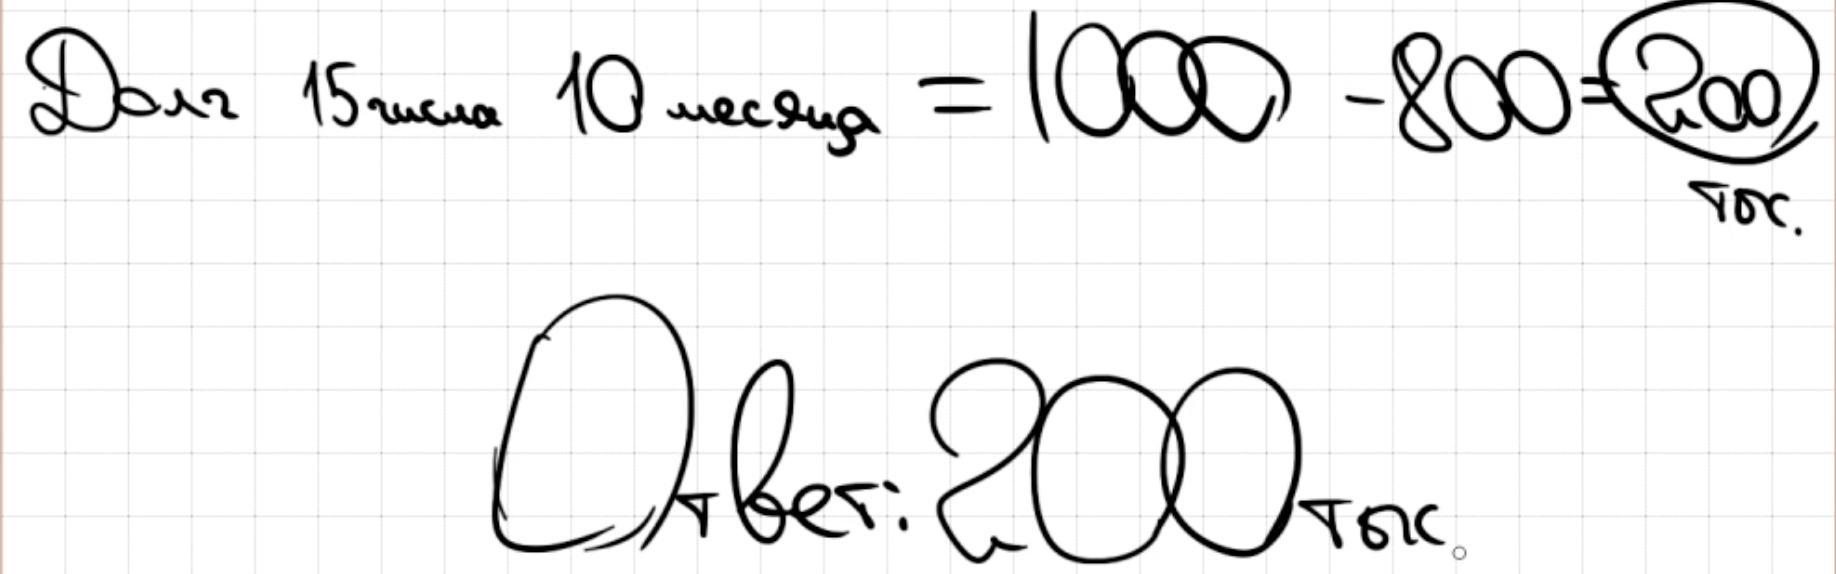 Долг 15 числа 10 месяца = 1000 - 800 = 200
тыс.
Ответ: 200 тыс.